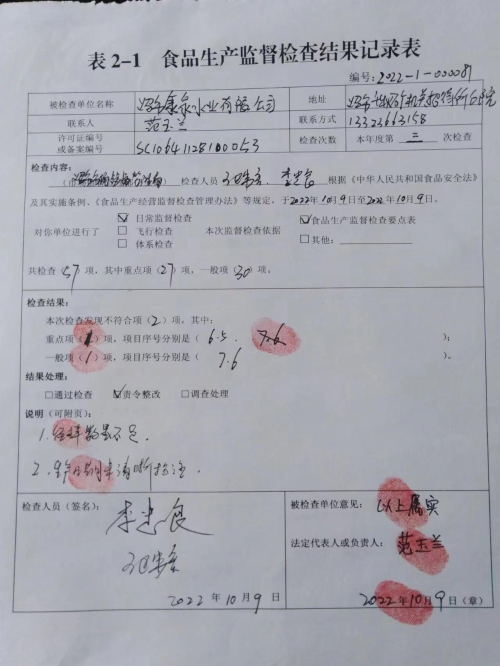 表 2-1 食品生产监督检查结果记录表
编号：2022-1-000081
被检查单位名称 康泉水业有限公司 地址
联系人 范玉兰 联系方式 13323663158
许可证编号
或备案编号 SC10641128100053 检查次数 本年度第 二 次检查
检查内容：
检查人员 根据《中华人民共和国食品安全法》
及其实施条例、《食品生产经营监督检查管理办法》等规定，于2022年10月9日至2022年10月9日。
对你单位进行了 ☑日常监督检查 □飞行检查 □体系检查 本次监督检查依据 ☑食品生产监督检查要点表 □其他：
共检查（57）项，其中重点项（27）项，一般项（30）项。
检查结果：
本次检查发现不符合项（2）项，其中：
重点项（1）项，项目序号分别是（ 6.5. 7.6 ）；
一般项（1）项，项目序号分别是（ 7.6 ）。
结果处理：
□通过检查 ☑责令整改 □调查处理
说明（可附页）：
1. 数量不足.
2. 生产日期
检查人员（签名）： 李忠良
2022年10月9日
被检查单位意见： 以上属实
法定代表人或负责人： 范玉兰
2022年10月9日（章）